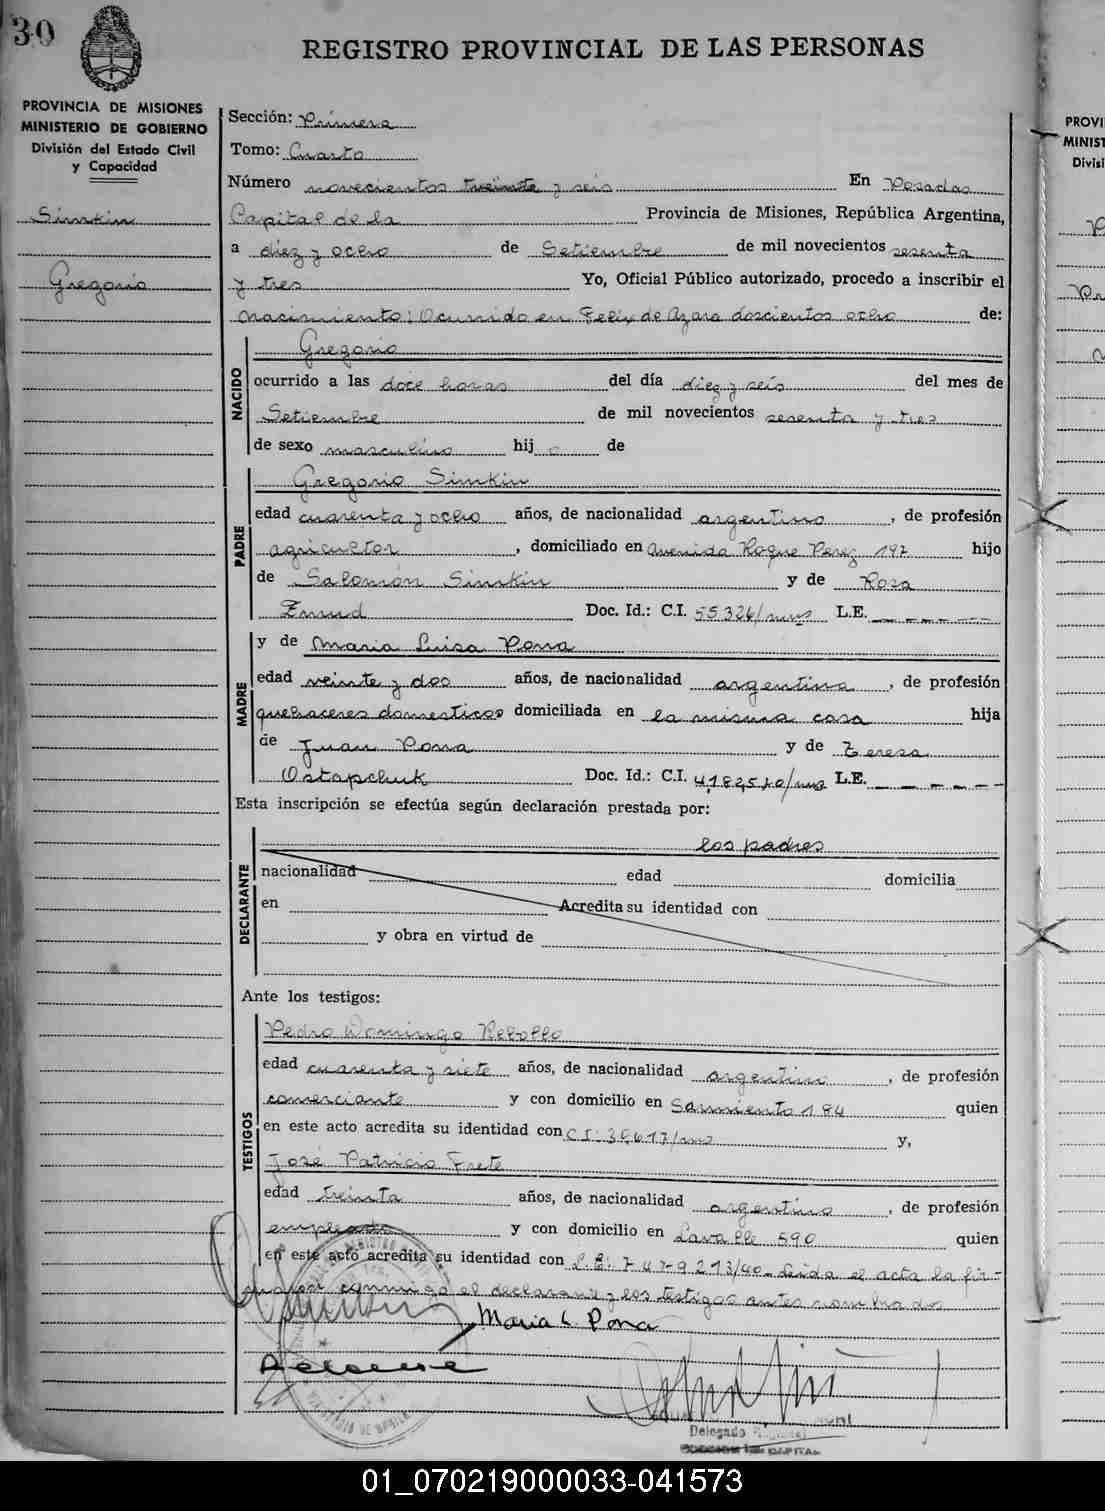 30
REGISTRO PROVINCIAL DE LAS PERSONAS
PROVINCIA DE MISIONES
MINISTERIO DE GOBIERNO
División del Estado Civil
y Capacidad
Simkin
Gregorio
Sección: Primera
Tomo: Cuarto
Número novecientos treinta y seis En Posadas
Capital de la Provincia de Misiones, República Argentina,
a diez y ocho de Setiembre de mil novecientos sesenta
y tres Yo, Oficial Público autorizado, procedo a inscribir el
nacimiento: Ocurrido en Felix de Azara doscientos ocho de:
NACIDO
Gregorio
ocurrido a las doce horas del día diez y seis del mes de
Setiembre de mil novecientos sesenta y tres
de sexo masculino hij o de
PADRE
Gregorio Simkin
edad cuarenta y ocho años, de nacionalidad argentino, de profesión
agricultor, domiciliado en Avenida Roque Perez 197 hijo
de Salomón Simkin y de Rosa
Doc. Id.: C.I. 55.326/ L.E.
MADRE
y de Maria Luisa Pona
edad veinte y dos años, de nacionalidad argentina, de profesión
quehaceres domesticos domiciliada en la misma casa hija
de Juan Pona y de Teresa
Ostapchuk Doc. Id.: C.I. L.E.
Esta inscripción se efectúa según declaración prestada por:
DECLARANTE
los padres
nacionalidad edad domicilia
en Acredita su identidad con
y obra en virtud de
Ante los testigos:
TESTIGOS
Pedro Domingo Rebollo
edad cuarenta y siete años, de nacionalidad argentino, de profesión
comerciante y con domicilio en Sarmiento 184 quien
en este acto acredita su identidad con C I: 36,617/ y,
José Patricio Frete
edad treinta años, de nacionalidad argentino, de profesión
empleado y con domicilio en Lavalle 590 quien
en este acto acredita su identidad con L.E: Leida el acta la fir-
conmigo el declarante y los testigos antes nombrados
Maria L. Pona
Delegado
CAPITAL
PROVI
MINIST
Divisi
01_070219000033-041573